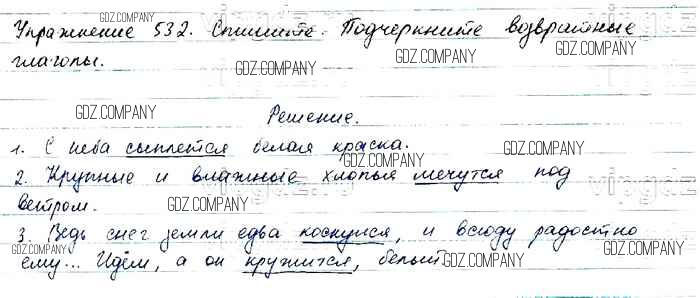 Упражнение 532. Спишите. Подчеркните возвратные
глаголы.
Решение.
1. С неба сыплется белая краска.
2. Крупные и влажные хлопья мечутся под
ветром.
3. Ведь снег земли едва коснулся, и всюду радостно
ему... Идём, а он кружится, белый.
GDZ.COMPANY
GDZ.COMPANY
GDZ.COMPANY
GDZ.COMPANY
GDZ.COMPANY
GDZ.COMPANY
GDZ.COMPANY
GDZ.COMPANY
GDZ.COMPANY
GDZ.COMPANY